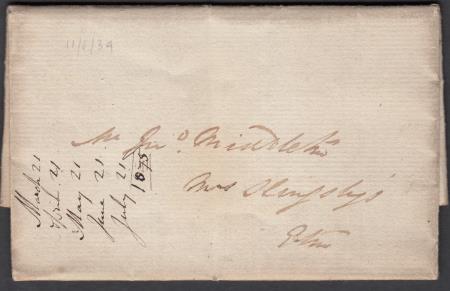 11/8/34
Mr Jno. Middleton
Mrs Slingsby's
Eton
March 21
April 21
May 21
June 21
July 21
1875